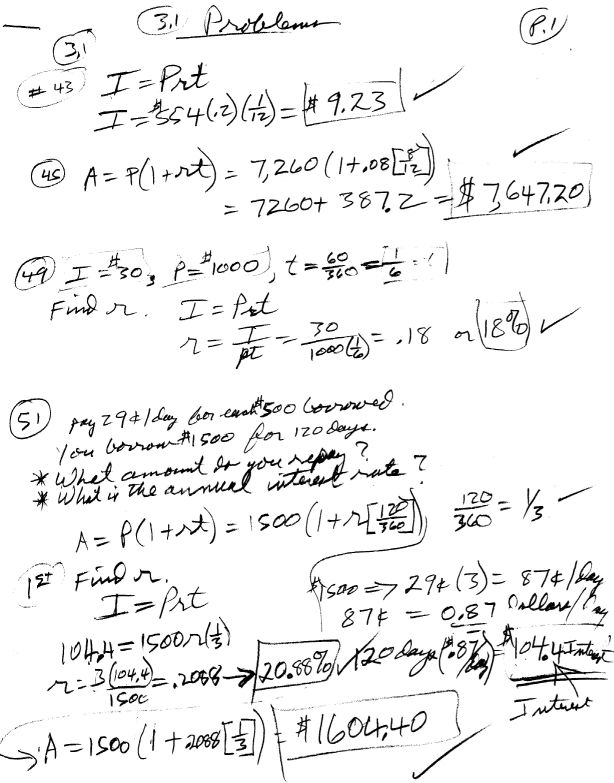 3.1 Problems P.1
3.1
#43 I = Prt
I = $554(.2)(1/12) = $9.23 ✓
45 A = P(1+rt) = 7,260(1+.08[8/12]) ✓
= 7260 + 387.2 = $7,647.20
49 I = $30, P = $1000, t = 60/360 = 1/6
Find r. I = Prt
r = I/pt = 30/1000(1/6) = .18 or 18% ✓
51 pay 29¢/day for each $500 borrowed.
You borrow $1500 for 120 days.
* What amount do you repay?
* What is the annual interest rate?
A = P(1+rt) = 1500(1+r[120/360]) 120/360 = 1/3 ✓
1st Find r. $1500 => 29¢(3) = 87¢/day
I = Prt 87¢ = 0.87 Dollars/Day
104.4 = 1500r(1/3)
r = 3(104.4)/1500 = .2088 → 20.88% ✓ 120 days($.87/day) = $104.4 Interest
Interest
A = 1500(1+.2088[1/3]) = $1604.40 ✓